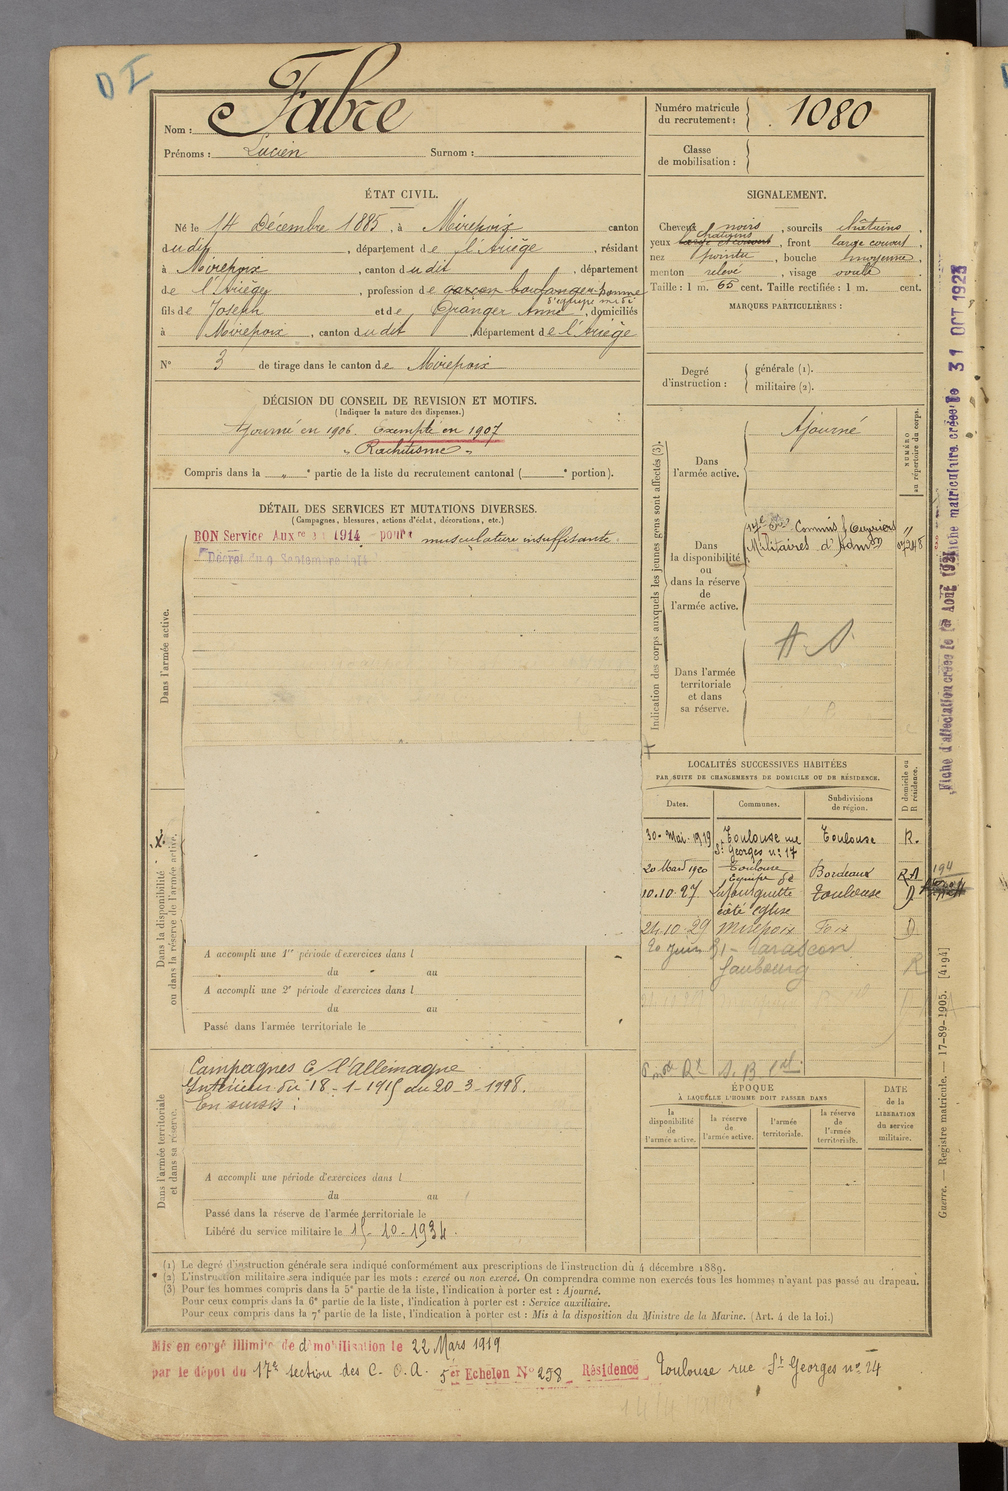 D I
Nom : Fabre
Prénoms : Lucien Surnom :
Numéro matricule du recrutement : 1080
Classe de mobilisation :
ÉTAT CIVIL.
Né le 14 Décembre 1885, à Mirepoix canton
dudit, département de l'Ariège, résidant
à Mirepoix, canton dudit, département
de l'Ariège, profession de garçon boulanger homme
d'équipe midi
fils de Joseph et de Granger Anne, domiciliés
à Mirepoix, canton dudit, département de l'Ariège
N° 3 de tirage dans le canton de Mirepoix
SIGNALEMENT.
Cheveux noirs, sourcils châtains,
yeux châtains, front large couvert,
nez pointu, bouche moyenne,
menton relevé, visage ovale.
Taille : 1 m. 65 cent. Taille rectifiée : 1 m. cent.
MARQUES PARTICULIÈRES :
Degré d'instruction : générale (1).
militaire (2).
DÉCISION DU CONSEIL DE REVISION ET MOTIFS.
(Indiquer la nature des dispenses.)
Ajourné en 1906. Exempté en 1907
" Rachitisme "
Compris dans la " e partie de la liste du recrutement cantonal ( e portion).
DÉTAIL DES SERVICES ET MUTATIONS DIVERSES.
(Campagnes, blessures, actions d'éclat, décorations, etc.)
BON Service Auxre en 1914 pour musculature insuffisante.
Décret du 9 Septembre 1914
Dans l'armée active.
Indication des corps auxquels les jeunes gens sont affectés (3).
NUMÉRO au répertoire du corps.
Dans l'armée active.
Ajourné
Dans la disponibilité ou dans la réserve de l'armée active.
17e Son Commis f Ouvriers
Militaires d'Admon
Dans l'armée territoriale et dans sa réserve.
LOCALITÉS SUCCESSIVES HABITÉES
PAR SUITE DE CHANGEMENTS DE DOMICILE OU DE RÉSIDENCE.
D domicile ou R résidence.
Dates. Communes. Subdivisions de région.
30 Mai 1919 Toulouse rue St Georges n: 17 Toulouse R.
20 Mars 1920 Toulouse Bordeaux
10.10.27 Lafourguette côté église Toulouse D
24.10.29 Mirepoix Foix D.
20 Juin 31 - Tarascon
faubourg R
Dans la disponibilité ou dans la réserve de l'armée active.
A accompli une 1re période d'exercices dans l
du au
A accompli une 2e période d'exercices dans l
du au
Passé dans l'armée territoriale le
Dans l'armée territoriale et dans sa réserve.
Campagnes C/ l'Allemagne
Intérieur du 18-1-1915 au 20-3-1918.
En sursis :
A accompli une période d'exercices dans l
du au
Passé dans la réserve de l'armée territoriale le
Libéré du service militaire le 15-10-1934.
ÉPOQUE
À LAQUELLE L'HOMME DOIT PASSER DANS
la disponibilité de l'armée active. la réserve de l'armée active. l'armée territoriale. la réserve de l'armée territoriale.
DATE de la LIBÉRATION du service militaire.
(1) Le degré d'instruction générale sera indiqué conformément aux prescriptions de l'instruction du 4 décembre 1889.
(2) L'instruction militaire sera indiquée par les mots : exercé ou non exercé. On comprendra comme non exercés tous les hommes n'ayant pas passé au drapeau.
(3) Pour les hommes compris dans la 5e partie de la liste, l'indication à porter est : Ajourné.
Pour ceux compris dans la 6e partie de la liste, l'indication à porter est : Service auxiliaire.
Pour ceux compris dans la 7e partie de la liste, l'indication à porter est : Mis à la disposition du Ministre de la Marine. (Art. 4 de la loi.)
Mis en congé illimité de démobilisation le 22 Mars 1919
par le dépôt du 17e section des C. O. A. 5er Echelon N° 258 Résidence Toulouse rue St Georges no 24
Fiche d'affectation créée le 1er Août 1921
Fiche matriculaire créée le 31 OCT 1923
Guerre. — Registre matricule. — 17-89-1905. [4194]